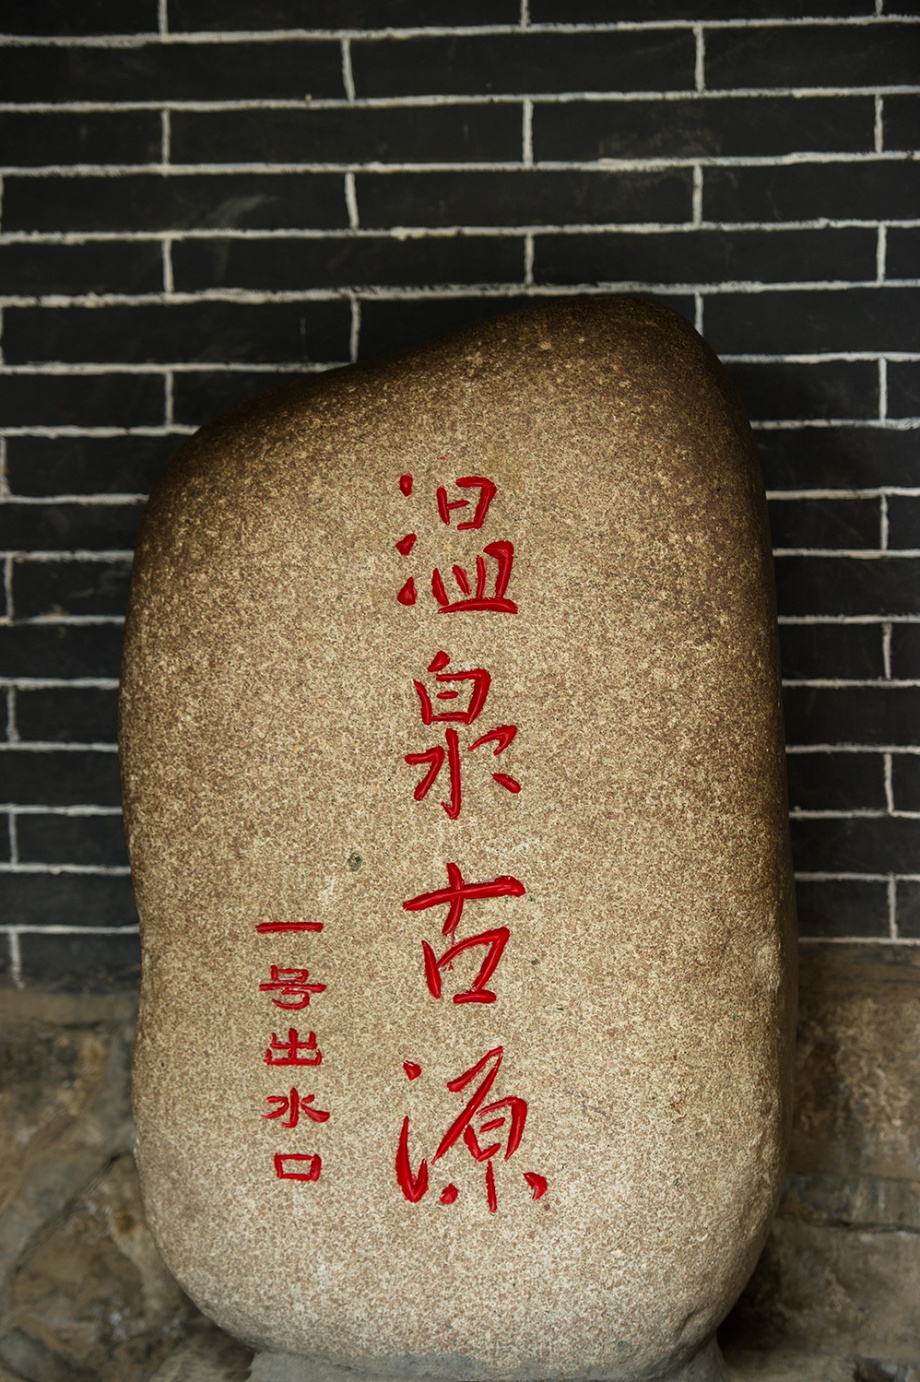 温泉古源
一号出水口